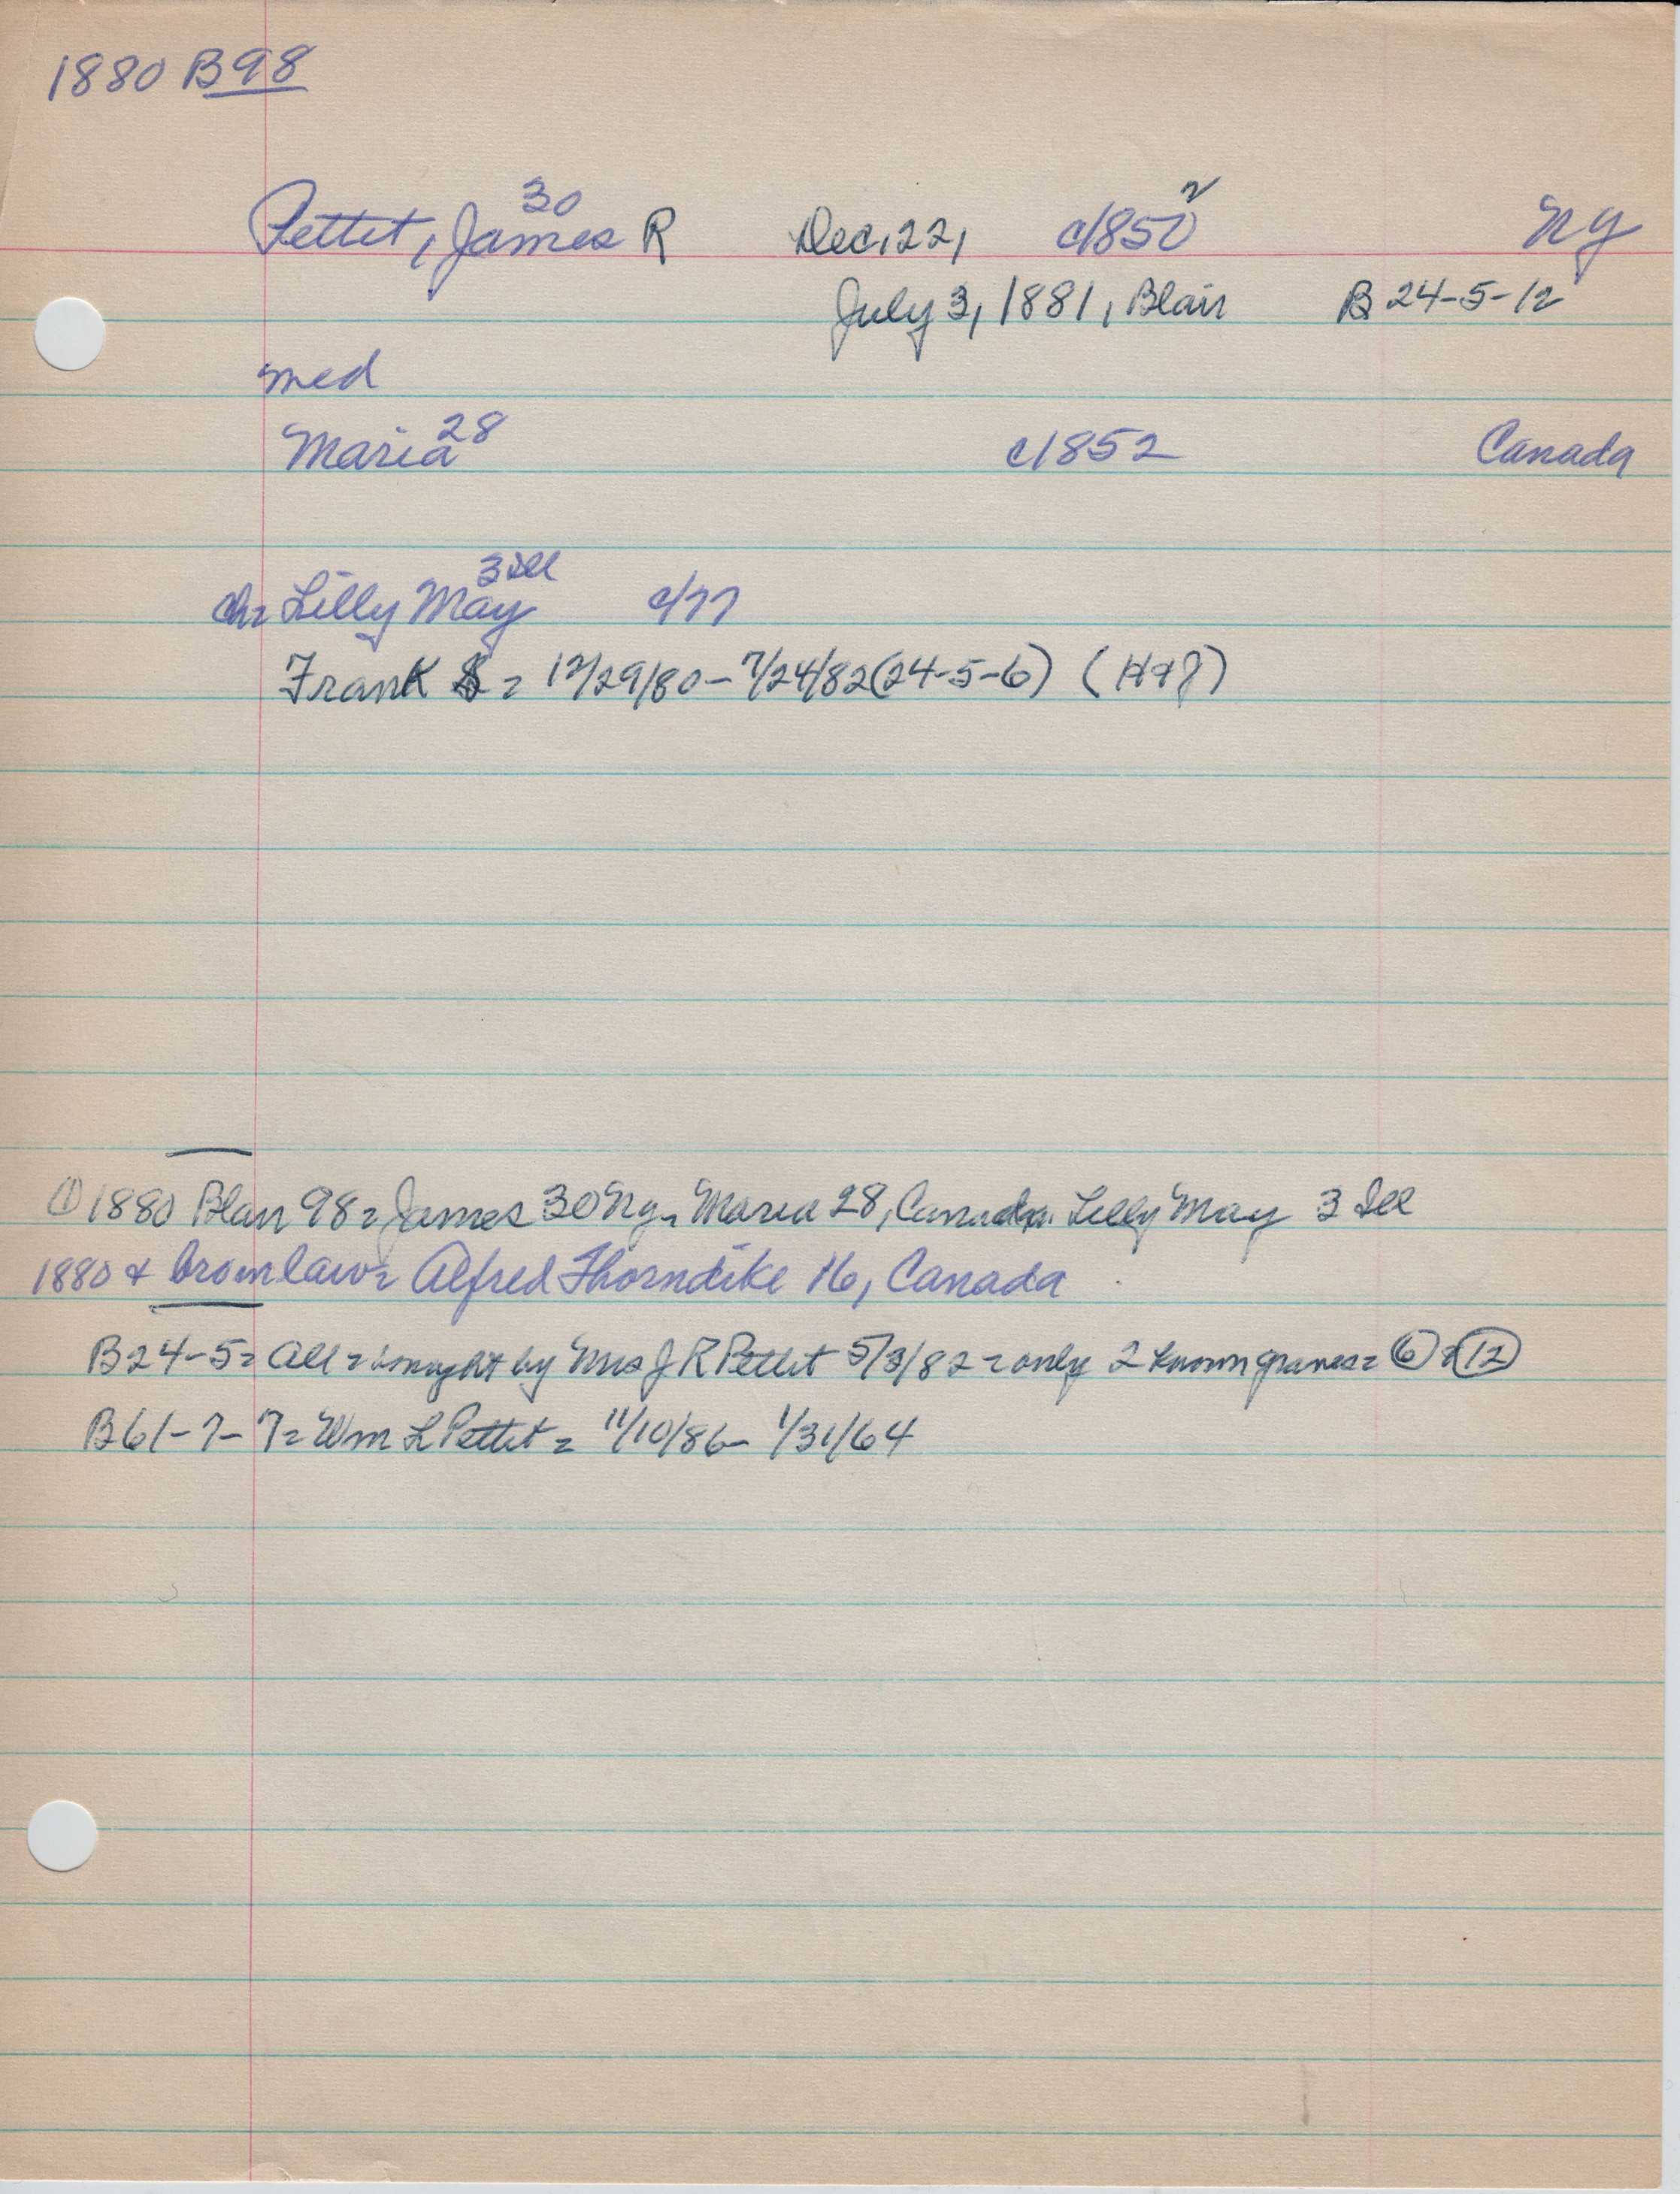 1880 B98
Pettit, James 30 R Dec, 22, c/1850 2 NY
July 3, 1881, Blair B 24-5-12
med
Maria 28 c/1852 Canada
ch= Lilly May 3 Ill c/77
Frank = 12/29/80 - 7/24/82 (24-5-6)
① 1880 Blair 98 = James 30 NY, Maria 28, Canada. Lilly May 3 Ill
1880 + broinlaw = Alfred Thorndike 16, Canada
B24-5 = All = bought by Mrs J R Pettit 5/3/82 = only 2 known graves = ⑥ & ⑫
B61-7-7 = Wm L Pettit = 11/10/86 - 1/31/64